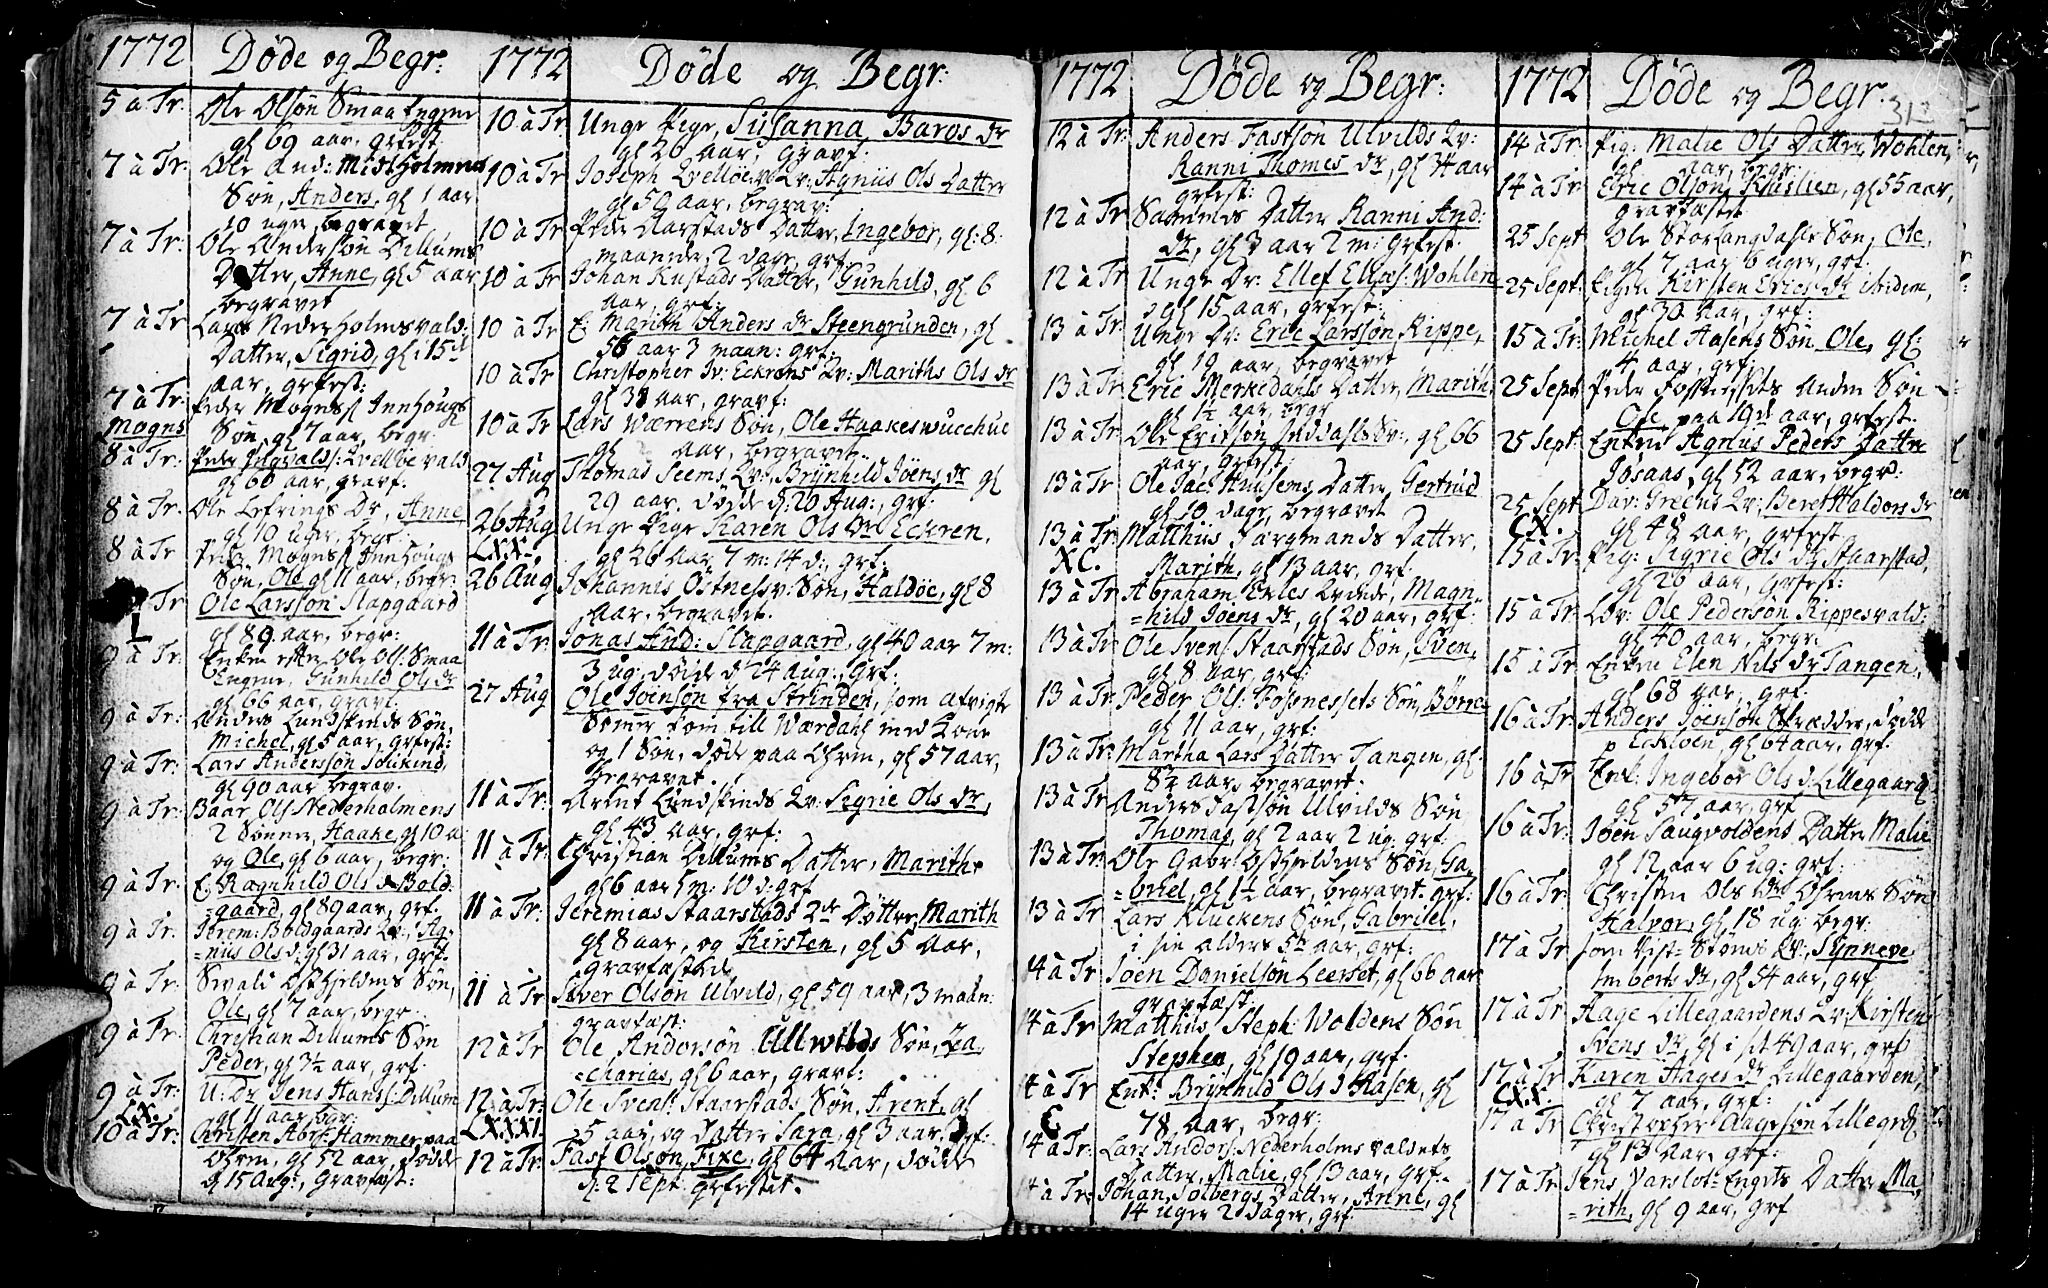 1772 Døde og Begr:
5 à Tr. Ole Olsøn Smaa Engene
gl 69 aar, grfest.
7 à Tr. Ole And: Mist Holmens
Søn, Anders, gl 1 aar
10 uger, begravet
7 à Tr: Ole Andersøn Dillums
Datter, Anne, gl 5 aar
begravet
7 à Tr. Lars Nederholmsvald:
Datter, Sigrid, gl: 15
aar, grfest:
7 à Tr. Peder Mogns: Innhougs
Mogns Søn, gl 7 aar, begr.
8 à Tr: Peder Ingvalds: Qvelløe vald
gl 60 aar, gravf:
8 à Tr. Ole Lefrings Dr, Anne,
gl 10 uger, begr:
8 à Tr Peder Mogns: Innhougs
Søn, Ole, gl 11 aar, begr:
Tr Ole Larssøn Slapgaard
L gl 89 aar, begr:
9 à Tr. Enken efter Ole Ols: Smaa
Engene, Gunhild Ols dr
gl 66 aar, gravf.
9 à Tr: Anders Lundskinds Søn,
Michel, gl 5 aar, grfest:
9 à Tr: Lars Andersøn Soukind,
gl 90 aar begrav.
9 à Tr: Baar Ols Nederholmens
2 Sønner, Haake, gl 10 a:
og Ole, gl 6 aar, begr:
9 à Tr. E: Ragnhild Ols d Bold:
=gaard, gl 89 aar, grf.
9 à Tr. Jerem: Boldgaards Qv:, Ag-
=niis Ols d: gl 31 aar, grf.
9 à Tr. Sivald Østhjeldens Søn,
Ole, gl 7 aar, begr.
9 à Tr. Christian Dillums Søn
Peder, gl 3½ aar, grf.
9 à Tr: U: Dr Jens Hans: Dillum
LX. gl 11 aar, begr:
10 à Tr: Christen Abr: Hammer paa
Øhren, gl 52 aar, døde
d 15 Aug:, Gravfæst:
1772 Døde og Begr:
10 à Tr Unge Pige, Susanna Baros dr
gl 20 aar, gravf:
10 à Tr Joseph Qvelløe v: Qv: Agniis Ols Datter
gl 50 aar, begrav:
10 à Tr Peder Aarstads Datter, Ingebor, gl: 8
maaneder, 2 dage, grf.
10 à Tr Johan Kustads Datter, Gunhild, gl 6
aar, grf:
10 à Tr E: Marith Anders dr Steengrunden, gl
56 aar 3 maan: grf:
10 à Tr Christopher Jv: Eckrens Qv: Mariths Ols dr
gl 38 aar, gravf:
10 à Tr Lars Wærrens Søn, Ole Haakeswucchue
gl aar, begravet.
27 Aug Thomas Seems Qv: Brynhild Jøens dr gl
29 aar, døde d: 20 Aug:, grf:
26 Aug Unge Pige Karen Ols Dr Eckren,
LXX. gl 26 aar 7 m: 14 d:, grf:
26 Aug Johannis Østnessv: Søn, Haldoe, gl 8
aar, begravet.
11 à Tr: Jonas And: Slapgaard, gl 40 aar 7 m:
3 ug: døde d 24 Aug:, grf.
27 Aug Ole Joensøn fra Strinden, som afvigte
Somer kom till Wærdahl med Kone
og 1 Søn, døde paa Øhren, gl 57 aar,
begravet.
11 à Tr: Arent Lundskinds Qv: Sigrie Ols dr,
gl 43 aar, grf:
11 à Tr: Christian Dillums Datter, Marith,
gl 6 aar 5 m: 10 d: grf
11 à Tr: Jeremias Staarstads 2de Døtter, Marith
gl 8 aar, og Kirsten, gl 5 aar,
gravfæstede
11 à Tr: Siver Olsøn Ulvild, gl 59 aar, 3 maan:
gravfæst:
12 à Tr Ole Andersøn Ullwilds Søn, Za,
=charias, gl 6 aar, gravf:
12 à Tr: Ole Svens: Staarstads Søn, Arent, gl
LXXXI. 5 aar, og Datter Sara, gl 3 aar, grf:
12 à Tr: Fast Olsøn Fixe, gl 64 aar, døde
d: 2 Sept grfestet.
1772 Døde og Begr:
12 à Tr: Anders Fastsøn Ulvilds Qv:
Ranni Thomes dr, gl 34 aar
grfest:
12 à Tr Sammes Datter Ranni And:
dr, gl 3 aar 2 m: grfest.
12 à Tr Unge Dr: Ellef Ellevs: Wohlen
gl 15 aar, grfest:
13 à Tr: Unge Dr: Eric Larssøn Rippe,
gl 19 aar, begravet
13 à Tr: Eric Merkedahls Datter, Marith,
gl 1½ aar, begr
13 à Tr: Ole Ericsøn Indahls Sv:, gl 66
aar, grfest:
13 à Tr Ole Jac: Huusems Datter, Gertrud
gl 10 dage, begravet
13 à Tr: Matthiis Færgmands Datter,
XC. Marith, gl 13 aar, grf:
13 à Tr: Abraham Exles Qvinde, Magn-
=hild Joens dr, gl 20 aar, grf:
13 à Tr: Ole Svens: Staarstads Søn, Sven,
gl 8 aar, grf:
13 à Tr: Peder Ols: Fossnessets Søn, Børre
gl 11 aar, grf:
13 à Tr: Martha Lars Datter Tangen, gl
84 aar, begravet.
13 à Tr Anders Fastsøn Ulvilds Søn
Thomas, gl 2 aar 2 ug: grf:
13 à Tr: Ole Gabr: Østhjeldens Søn, Ga-
=briel, gl 1½ aar, begravet. grf:
13 à Tr Lars Kluckens Søn, Gabriel,
i sin alders 5te aar, grf:
14 à Tr Joen Danielsøn Leerset, gl 66 aar
gravfæst:
14 à Tr Matthiis Steph: Woldens Søn
Stephen, gl 19 aar, grf.
14 à Tr Enk: Brynhild Ols d Hasen, gl
C 78 aar, begr:
14 à Tr: Lars Anders: Nederholms valdets
Datter, Malie, gl 13 aar, grf.
14 à Tr: Johan Solbergs Datter, Anne, gl
14 uger 2 dager, grf.
1772 Døde og Begr. 313
14 à Tr. Pig: Malie Ols Datter Wohlen,
gl aar, begr.
14 à Tr: Eric Olsøn Kneslien, gl 55 aar,
gravfæstet
25 Sept Ole Storlangdahls Søn, Ole,
gl 7 aar 6 uger, grf.
25 Sept: Pigen Kirsten Erics dr Inden,
gl 30 aar, grf:
15 à Tr: Michel Hasens Søn Ole, gl:
4 aar, grf:
25 Sept Peder Fossnessets anden Søn
Ole paa 19de aar, grfest.
25 Sept: Enken Agniis Peders Datter
Josaas, gl 52 aar, begr:
25 Sept Dav: Greens Qv: Beret Haldors dr
CX. gl 48 aar, grfest
15 à Tr: Pig: Sigrie Ols dr Staarstad,
gl 26 aar, grfest:
15 à Tr: Qv: Ole Pedersøn Rippesvald:
gl 40 aar, begr:
15 à Tr Enken Elen Nils dr Tangen,
gl 68 aar, grf.
16 à Tr: Anders Joensøn Skrædder, døde
p Eckløen, gl 64 aar, grf.
16 à Tr Enk: Ingebor Ols d Lillegaard
gl 57 aar, grf
16 à Tr: Joen Saugvoldens Datter Malie
gl 12 aar 6 ug: grf:
16 à Tr: Christen Ols Øv: Øhrens Søn
Halvor, gl 18 ug begr:
17 à Tr Jørn Vist= Stømoe Qv: Synneve
Imberts dr, gl 54 aar, grf
17 à Tr: Aage Lillegaardens Qv: Kirsten
Svens dr, gl i sit 49 aar, grf
17 à Tr Karen Aages dr Lillegaarden,
CXX. gl 7 aar, grf:
17 à Tr Christopher Aagesøn Lillegrd
gl 13 aar, grf:
17 à Tr Jens Varslot=Engets Datter Ma,
=rith, gl 9 aar, grf